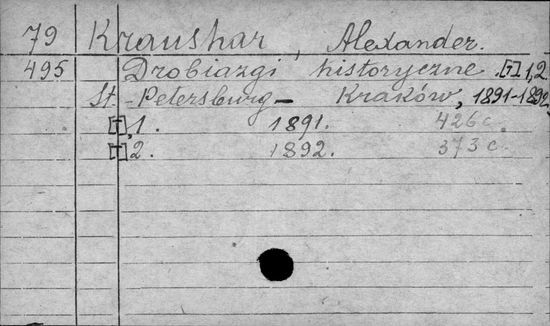 79 Kraushar, Alexander.
495 Drobiazgi historyczne [T] 1,2.
St.-Petersburg - Kraków, 1891-1892,
[T] 1. 1891. 426 c.
[T] 2. 1892. 373 c.